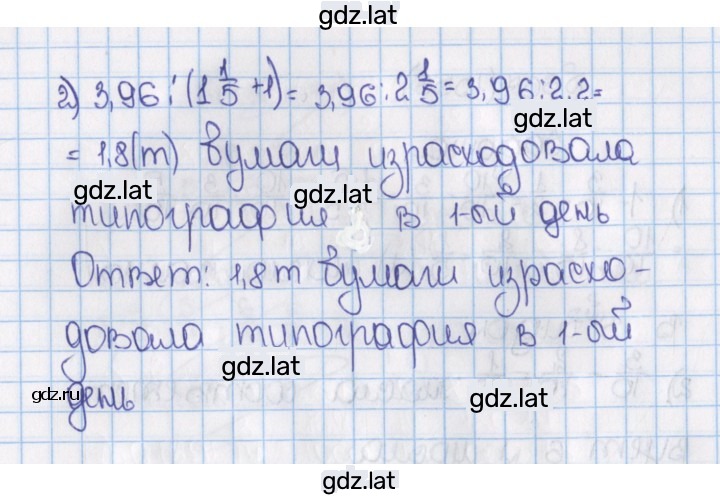 gdz.lat
2) 3,96 : (1 1/5 + 1) = 3,96 : 2 1/5 = 3,96 : 2,2 =
gdz.lat
= 1,8 (т) бумаги израсходовала
gdz.lat
gdz.lat
типография в 1-ый день
Ответ: 1,8 т бумаги израсхо-
довала типография в 1-ый
gdz.lat
gdz.ru
день
gdz.lat
gdz.lat